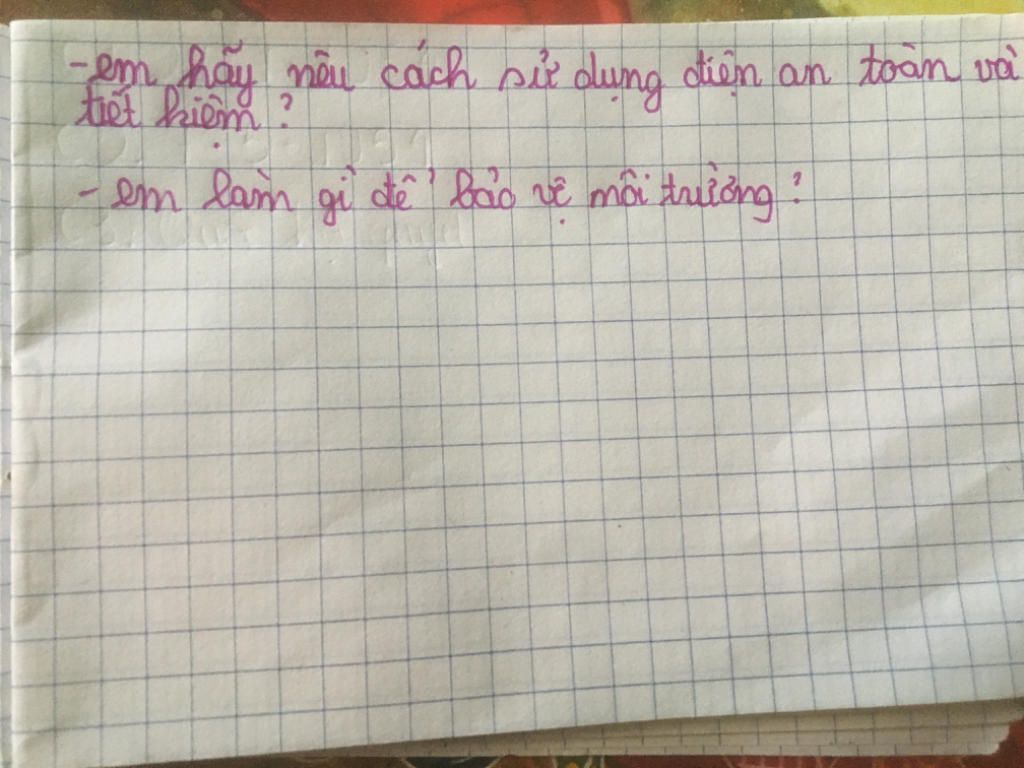 - em hãy nêu cách sử dụng điện an toàn và
tiết kiệm ?
- em làm gì để bảo vệ môi trường ?